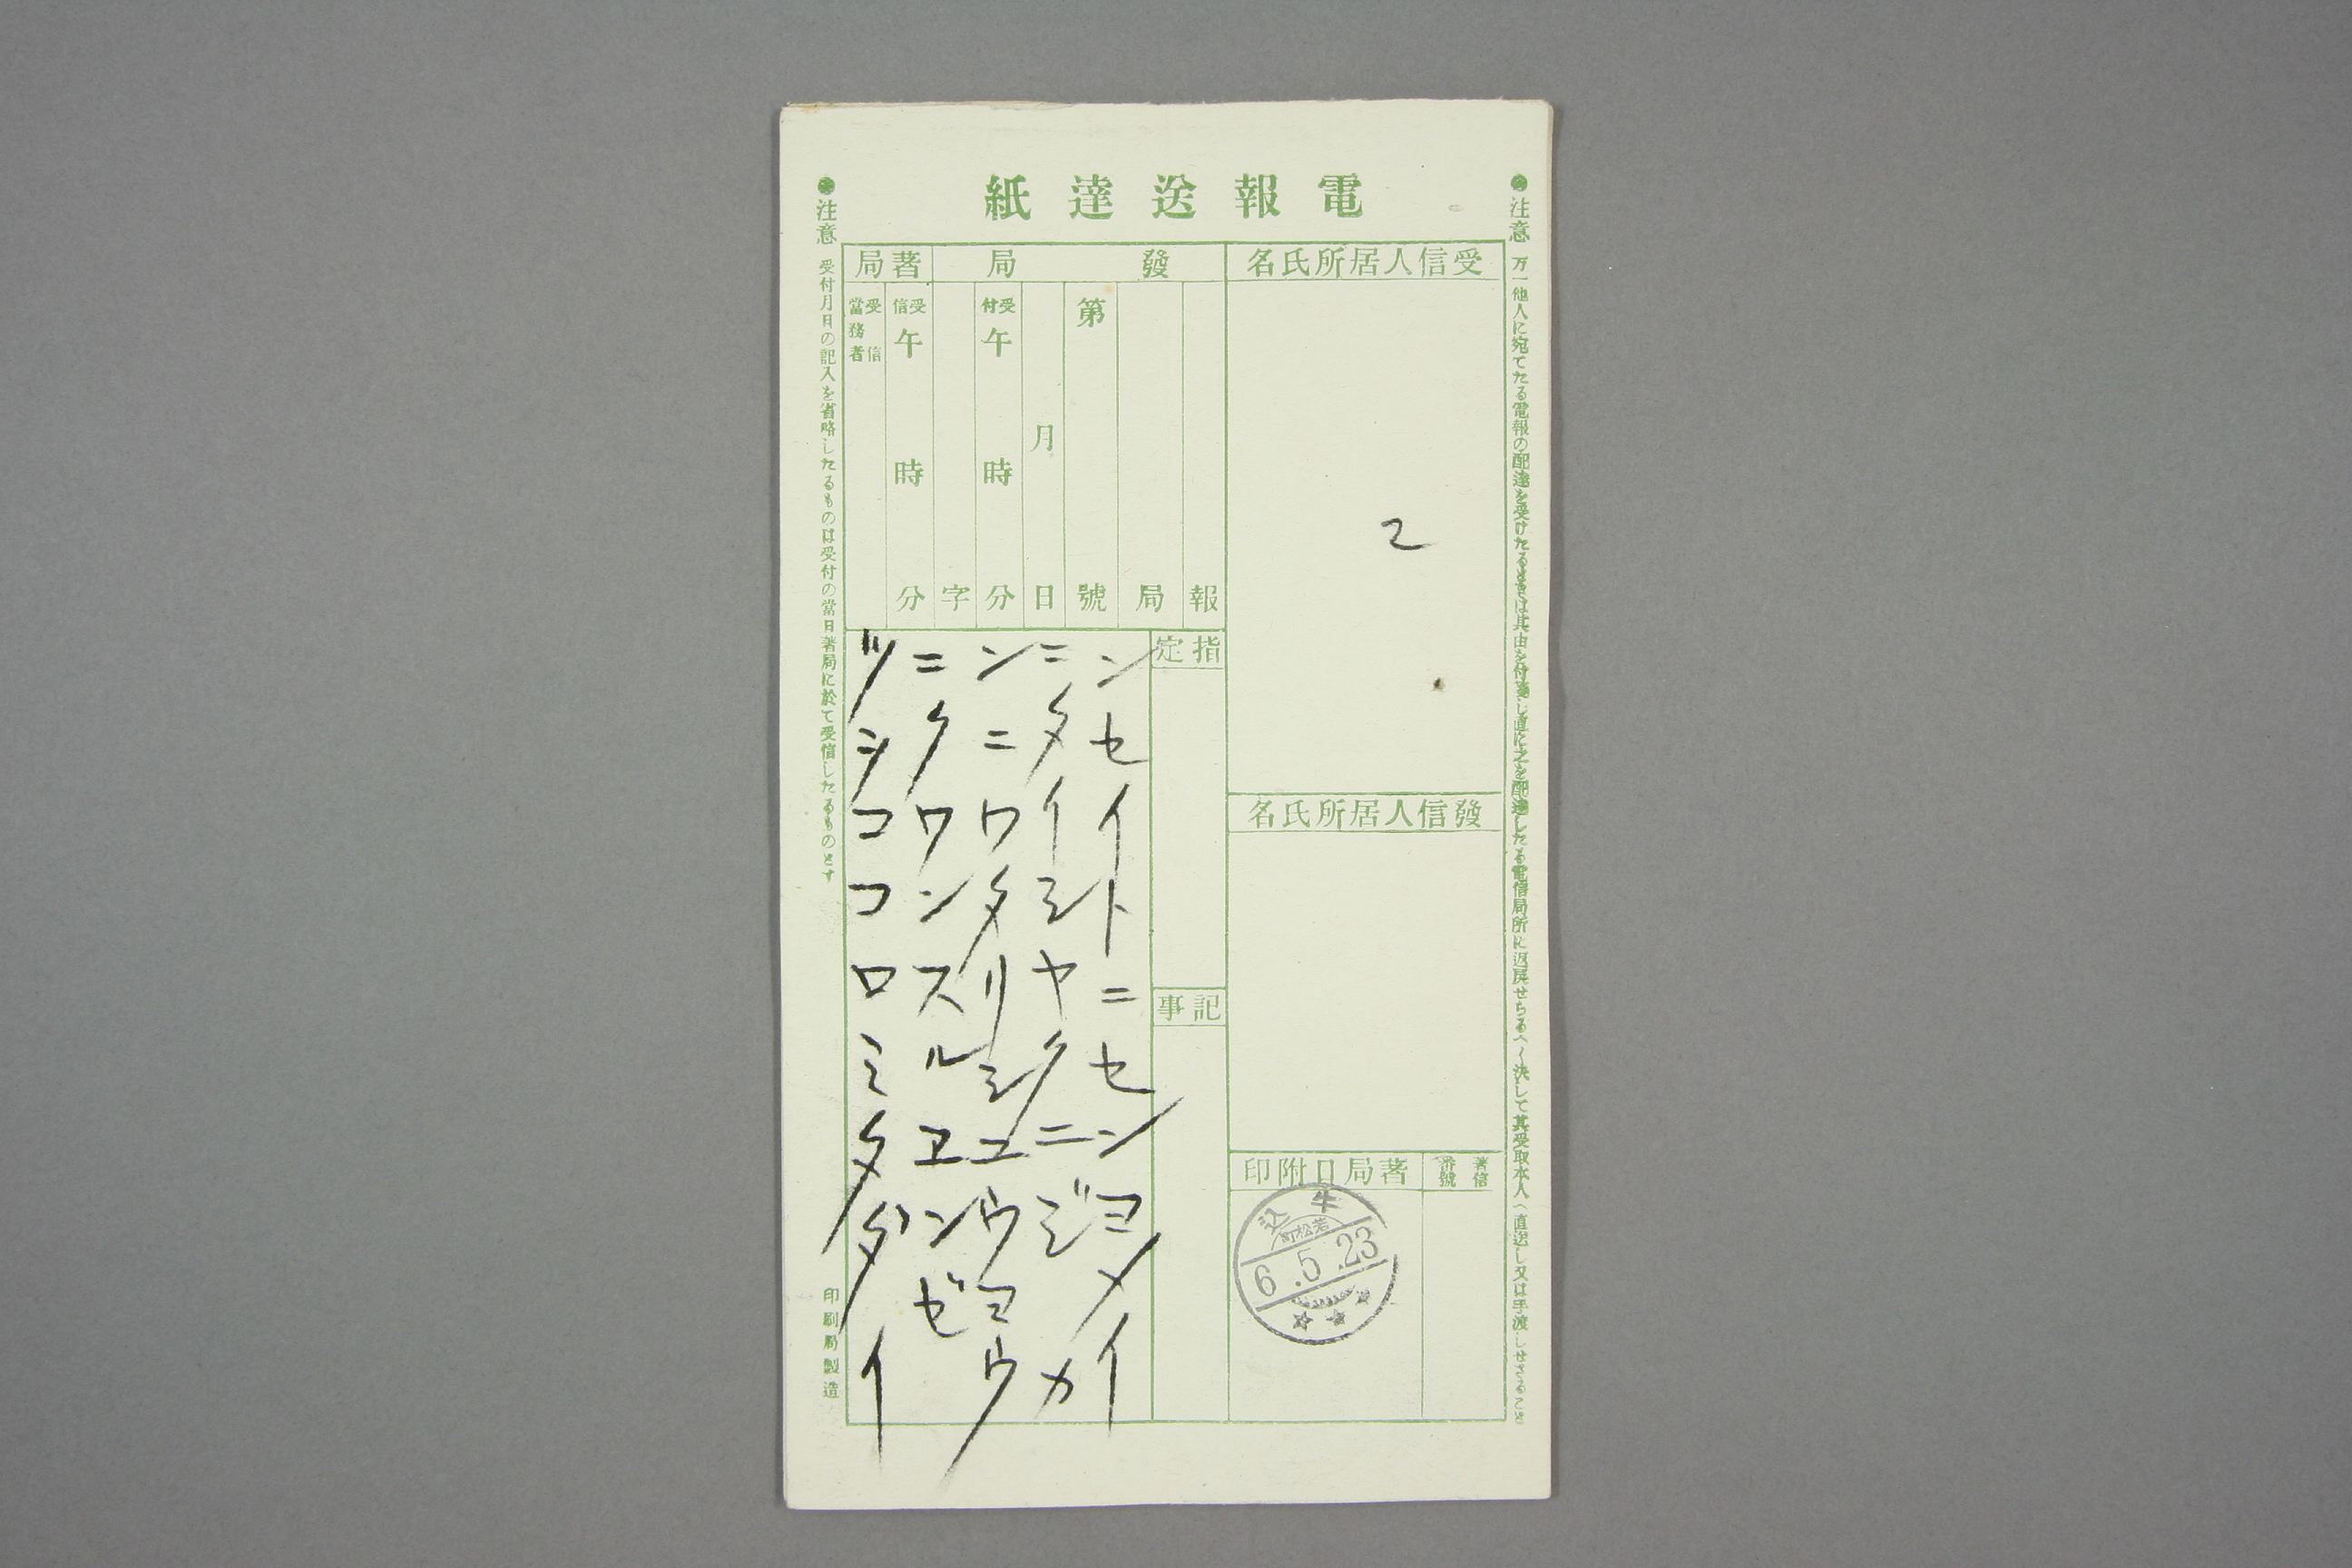 電報送達紙
●注意 万一他人に宛てたる電報の配達を受けたるときは其由を付箋し直に之を配達したる電信局所に返戻せらるへし決して其受取本人へ直送し又は手渡しせさること
受信人居所氏名
2
發信人居所氏名
著信番號
著局日附印
牛込
若松町
6.5.23
發局
報
局
第 號
月 日
受付午 時 分
字
著局
受信午 時 分
受信當務者
指定
記事
ンセイトニセンヨメイ
ニタイシヤクニジカ
ンニワタリシユウヨウ
ニクワンスルエンゼ
ツシココロミタダイ
●注意 受付月日の記入を省略したるものは受付の當日著局に於て受信したるものとす
印刷局製造